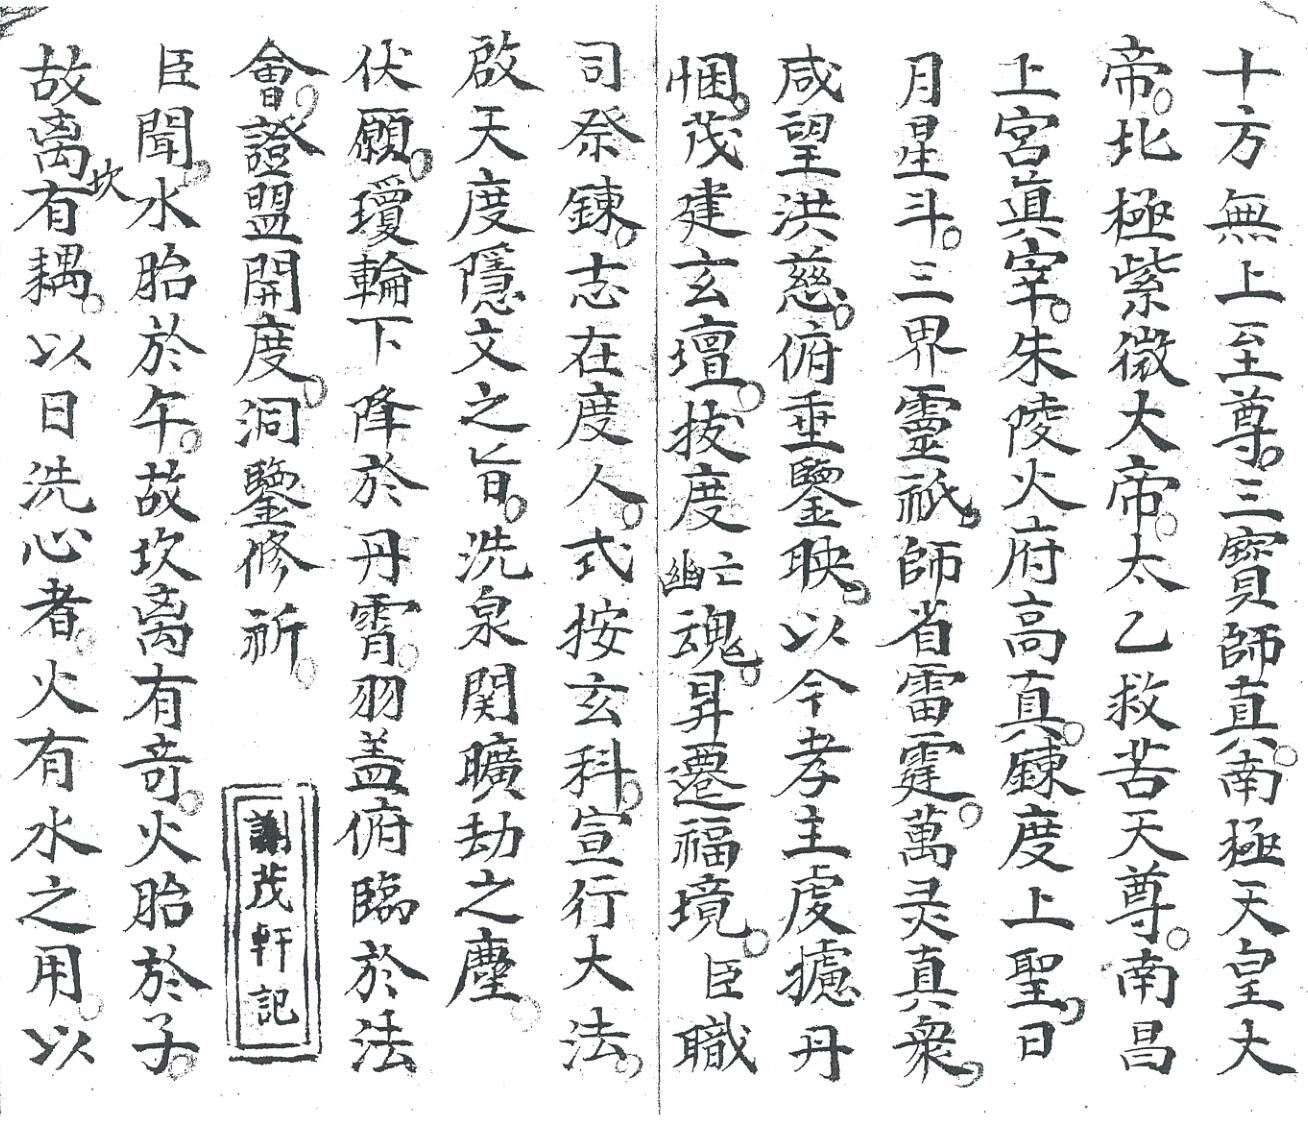 十方無上至尊。三寶師真。南極天皇大
帝。北極紫微大帝。太乙救苦天尊。南昌
上宮眞宰。朱陵火府高真。鍊度上聖。日
月星斗。三界靈祇。師省雷霆。萬灵真衆。
咸望洪慈。俯垂鑒映。以今孝主虔攄丹
悃。茂建玄壇。拔度幽亡魂。昇遷福境。臣職
司祭鍊。志在度人。式按玄科。宣行大法。
啟天度隱文之旨。洗泉関曠劫之塵。
伏願。瓊輪下降於丹霄。羽盖俯臨於法
會。證盟開度。洞鑒修祈。
謝茂軒記
臣聞。水胎於午。故坎离有竒。火胎於子。
故离坎有耦。以日洗心者。火有水之用。以